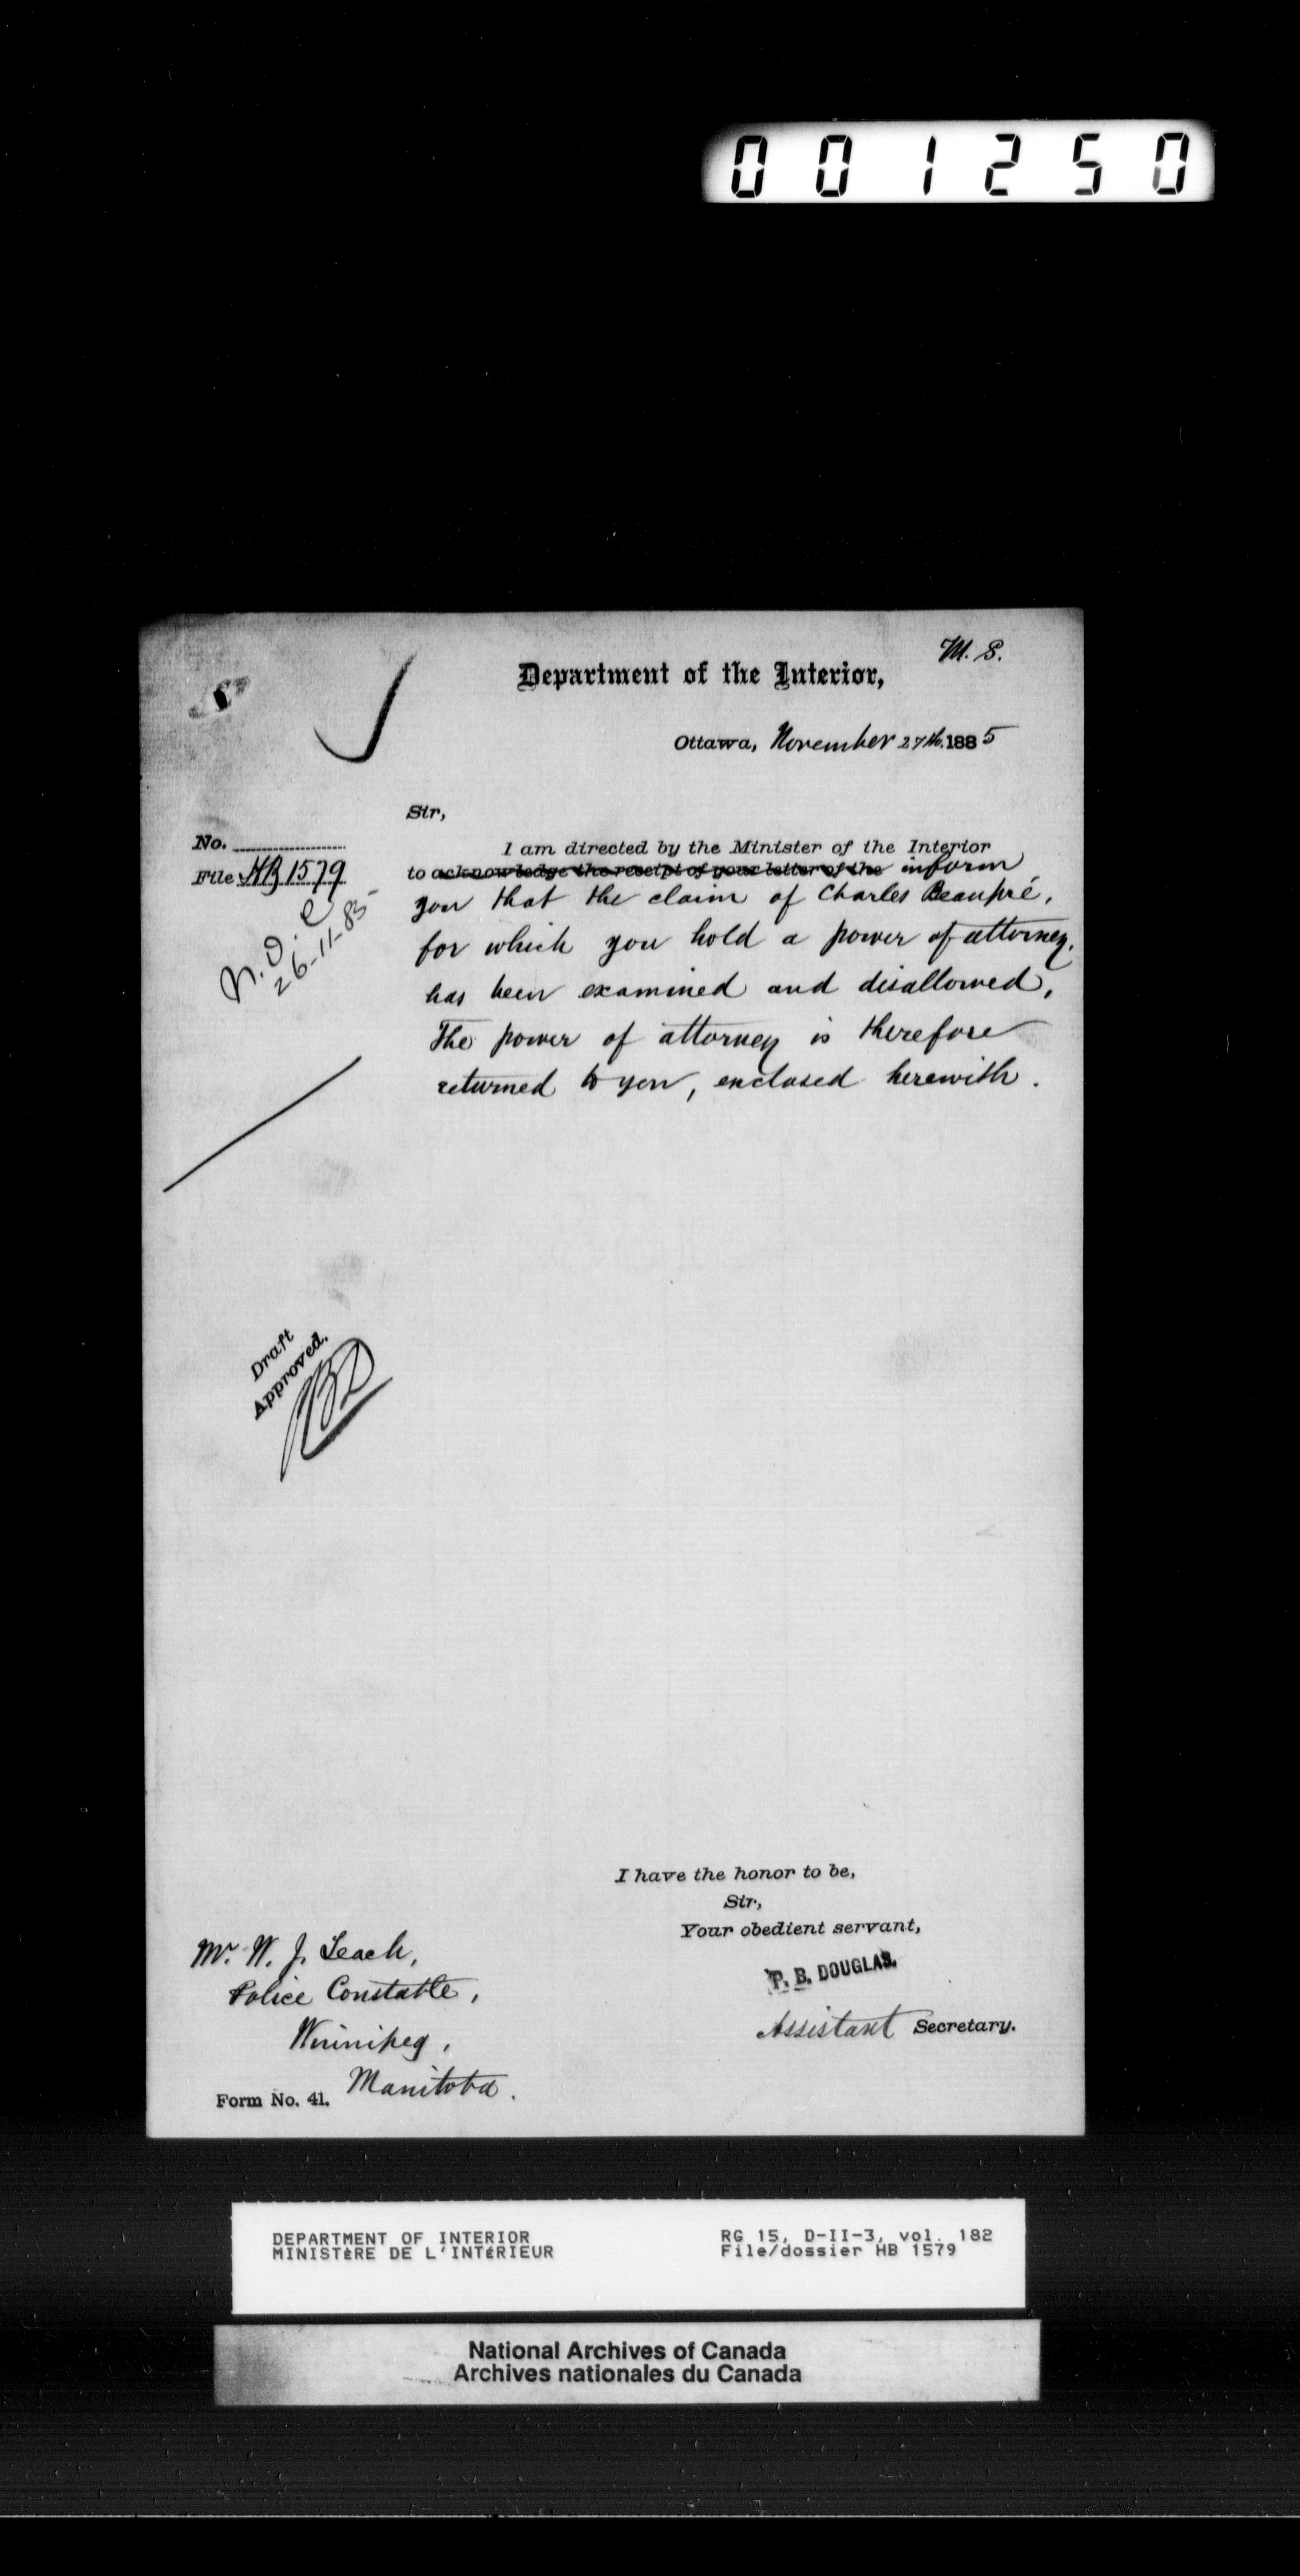 001250
M. S.
Department of the Interior,
Ottawa, November 27th. 1885
Sir,
No.
File HB 1579
26-11-85
I am directed by the Minister of the Interior
to acknowledge the receipt of your letter of the inform
you that the claim of Charles Beaupré,
for which you hold a power of attorney,
has been examined and disallowed,
The power of attorney is therefore
returned to you, enclosed herewith.
Draft
Approved.
I have the honor to be,
Sir,
Your obedient servant,
P. B. DOUGLAS.
Assistant Secretary.
Mr. W. J. Leach,
Police Constable,
Winnipeg,
Manitoba.
Form No. 41.
DEPARTMENT OF INTERIOR
MINISTÈRE DE L'INTÉRIEUR
RG 15, D-II-3, vol. 182
File/dossier HB 1579
National Archives of Canada
Archives nationales du Canada